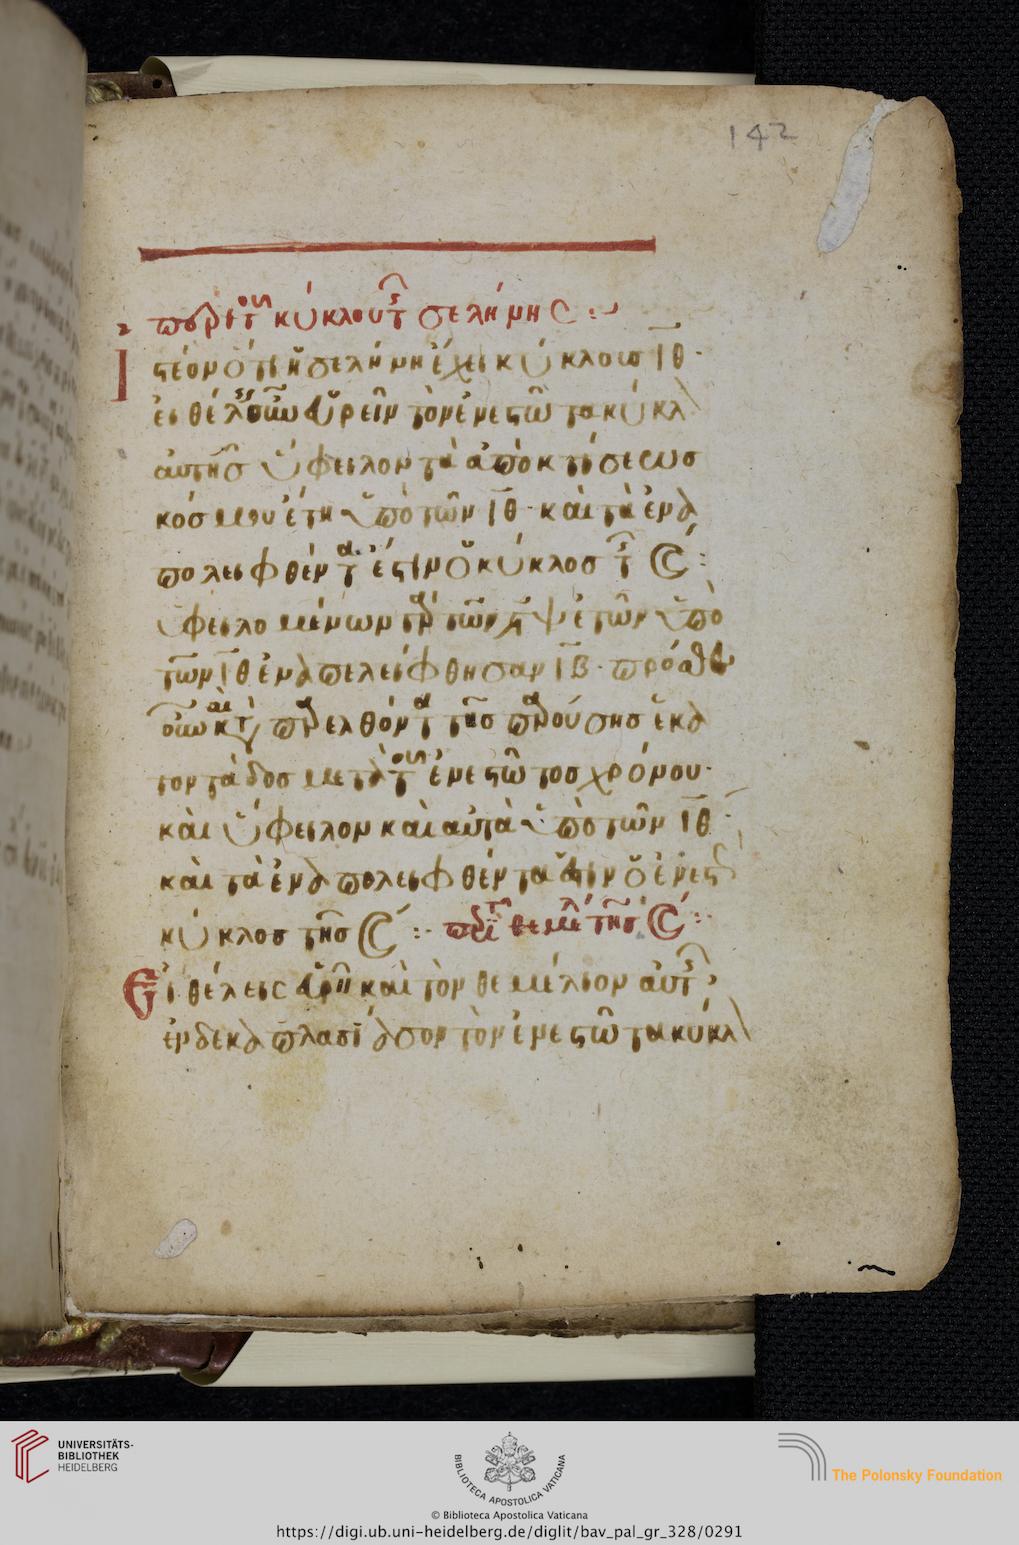 142
περὶ τοῦ κύκλου τῆς σελήνης
Ἰστέον ὅτι ἡ σελήνη ἔχει κύκλους ιθ·
εἰ θέλεις εὑρεῖν τὸν ἐνεστῶτα κύκλ
αὐτῆς ὕφειλον τὰ ἀπὸ κτίσεως
κόσμου ἔτη ὑπὸ τῶν ιθ· καὶ τὰ ἐνα
πολειφθέντα ἐστὶν ὁ κύκλος τῆς
ὑφειλομένων τῶν ὑπὸ
τῶν ιθ ἐναπελείφθησαν ιβ·
παρελθόντα τῆς παρούσης ἑκα
τοντάδος μετὰ τοῦ ἐνεστῶτος χρόνου·
καὶ ὕφειλον καὶ αὐτὰ ὑπὸ τῶν ιθ·
καὶ τὰ ἐναπολειφθέντα ἐστὶν ὁ ἐνεστ
κύκλος τῆς
Εἰ θέλεις εὑρεῖν καὶ τὸν θεμέλιον αὐτῆς
ἑνδεκαπλασίασον τὸν ἐνεστῶτα κύκλ
UNIVERSITÄTS-
BIBLIOTHEK
HEIDELBERG
BIBLIOTECA APOSTOLICA VATICANA
The Polonsky Foundation
© Biblioteca Apostolica Vaticana
https://digi.ub.uni-heidelberg.de/diglit/bav_pal_gr_328/0291